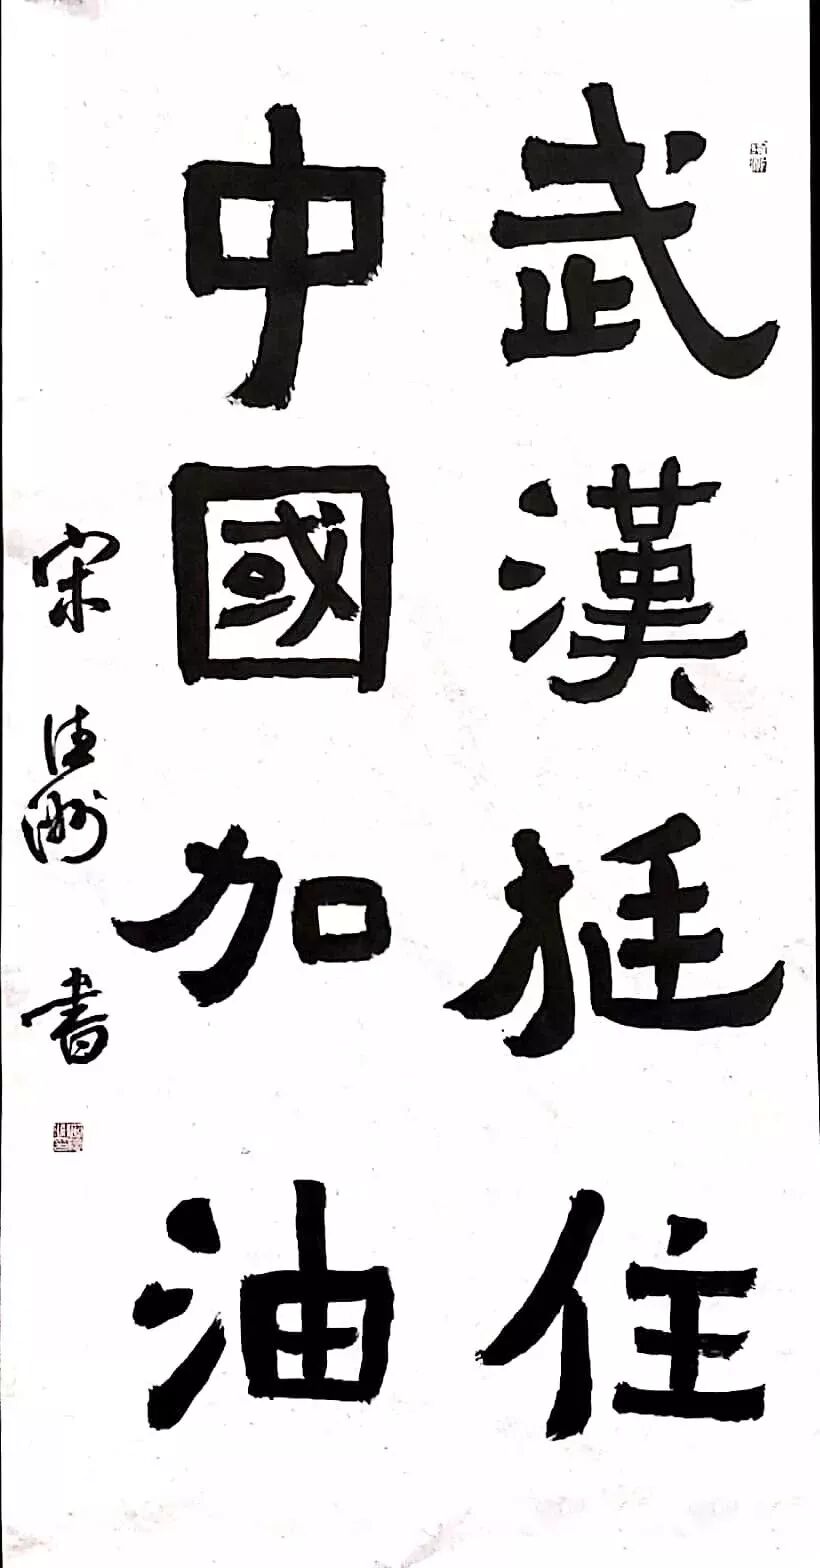 武漢挺住
中國加油
宋佳洲 書